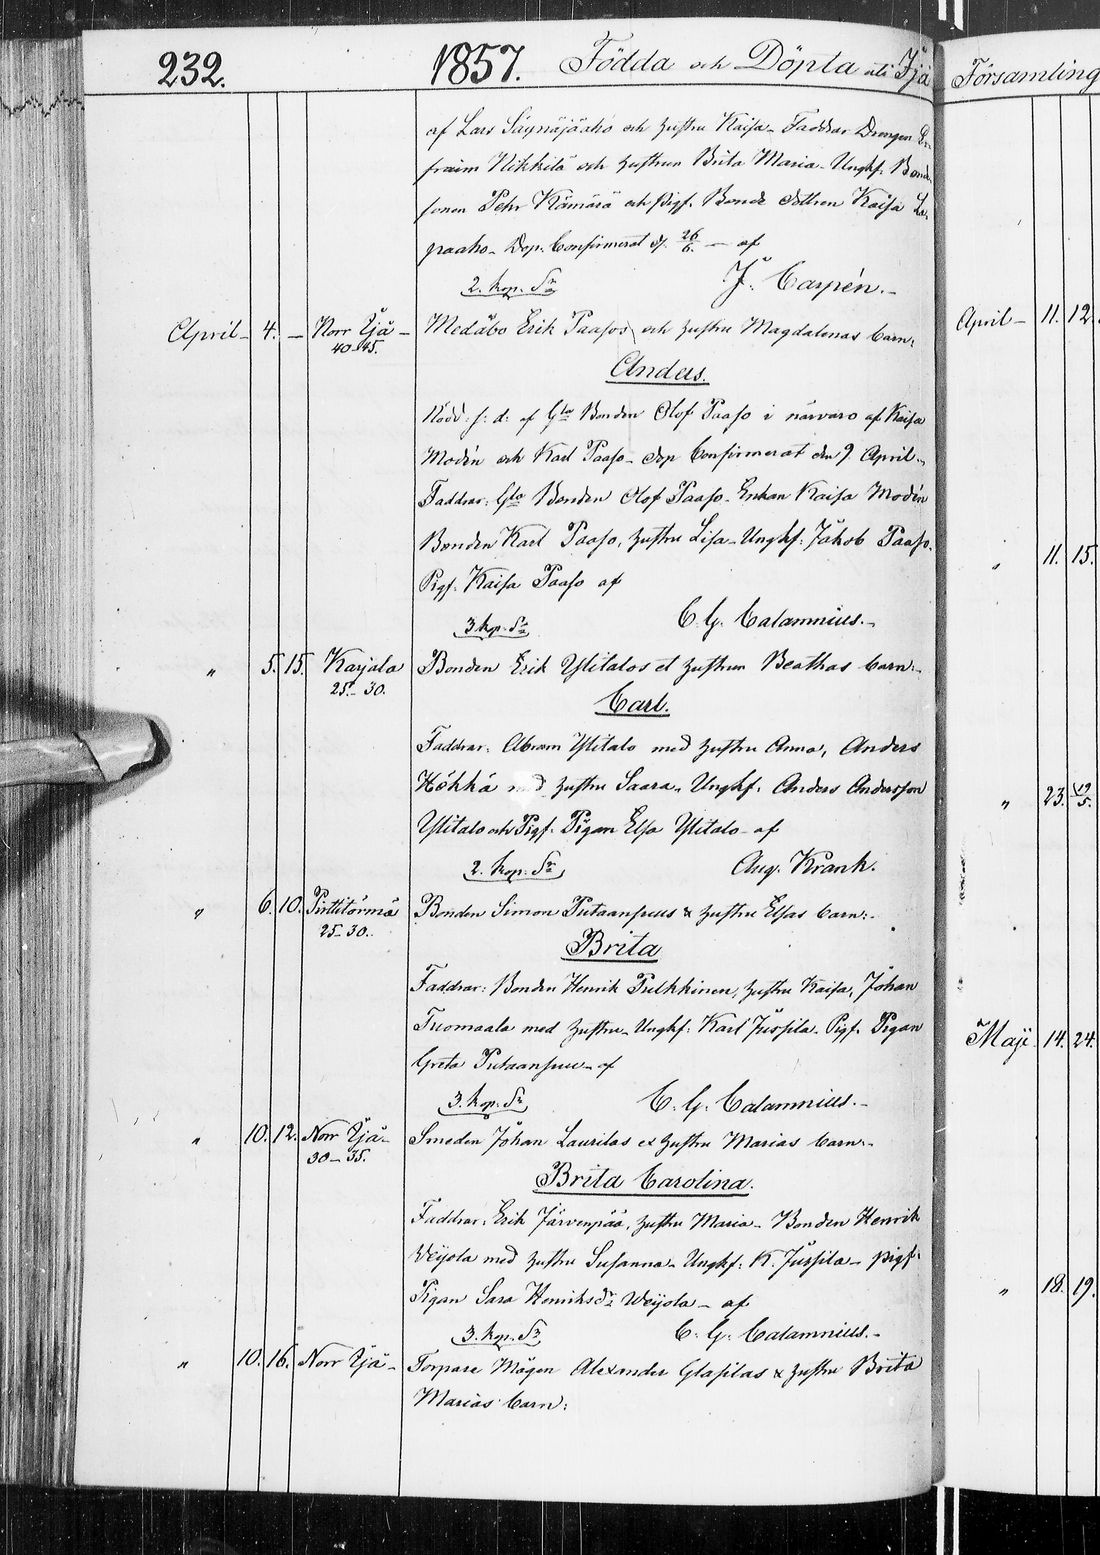 232. 1857. Födda och Döpta uti Ijå Församling
af Lars Säynäjäaho och hustru Kaisa - Faddrar Drengen E-
fraim Nikkilä och hustrun Brita Maria - Ungkf. Bonde
sonen Pehr Kämärä och Pigf. Bonde dottren Kaisa La-
paaho - Dop. Confirmerat d. 26/6. — af
2. kop. Sr J. Carpén. -
April - 4. - Norr Ijå - Medåbo Erik Paasos och hustru Magdalenas barn:
40-45.
Anders.
Nödd. f: d: af Gla Bonden Olof Paaso i närvaro af Kaisa
Modén och Karl Paaso - dop Confirmerat den 9. April -
Faddrar: Gla Bonden Olof Paaso - Enkan Kaisa Modén
Bonden Karl Paaso, hustru Lisa - Ungkf: Jakob Paaso.
Pigf. Kaisa Paaso af
3 kop. Sr C. G. Calamnius. -
" 5. 15. Karjala Bonden Erik Ylitalos et hustrun Beathas barn: -
25 - 30.
Carl.
Faddrar: Abram Ylitalo med hustru Anna, Anders
Hökkä med hustru Saara - Ungkf. Anders Andersson
Ylitalo och Pigf. Pigan Elsa Ylitalo - af
2. kop. Sr Aug. Krank.
" 6. 10. Pirttitörmä Bonden Simon Putaansuus & hustru Elsas barn: -
25 - 30.
Brita
Faddrar: Bonden Henrik Pulkkinen, hustru Kaisa, Johan
Tuomaala med hustru - Ungkf: Karl Jussila - Pigf. Pigan
Greta Putaansuu - af
3. kop. Sr C. G. Calamnius. -
" 10. 12. Norr Ijå - Smeden Johan Laurilas et hustru Marias barn: -
30 - 35.
Brita Carolina.
Faddrar: Erik Järvenpää, hustru Maria - Bonden Henrik
Weijola med hustru Susanna - Ungkf: K. Jussila - pigf:
Pigan Sara Henriksdr Weijola - af
3. kop. Sr C. G. Calamnius. -
" 10. 16. Norr Ijå - Torpare Mågen Alexander Glasilas & hustru Brita
Marias barn:
April - 11. 12.
" 11. 15.
" 23. 19/5.
Maji 14. 24.
" 18. 19.